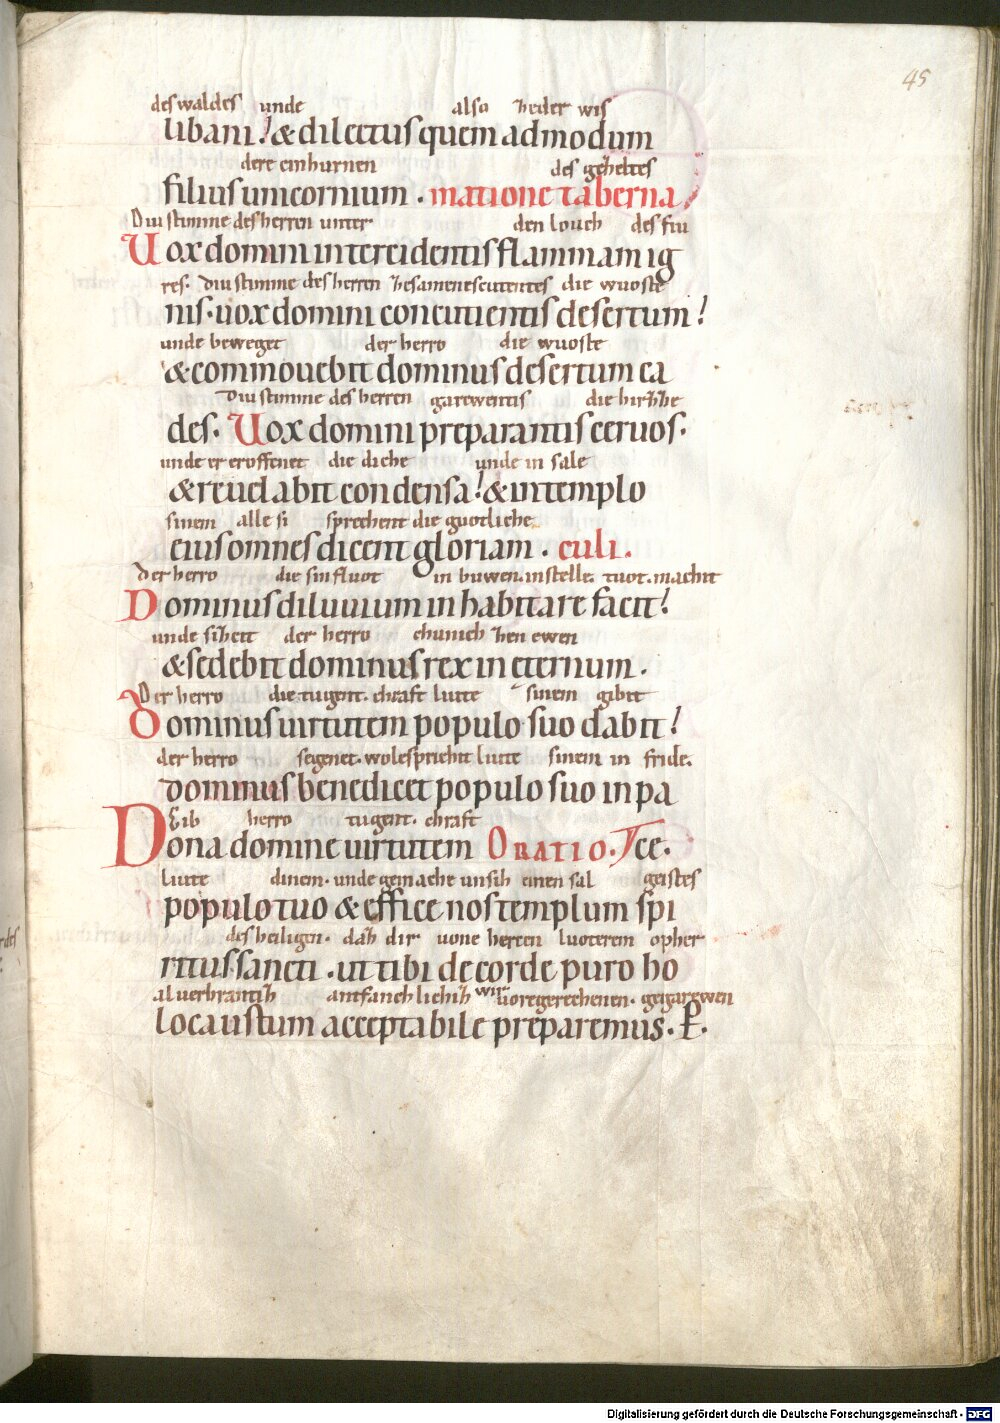 45
des waldes unde also zeder wis
libani! & dilectus quemadmodum
dere einhurnen des gezeltes
filius unicornium . matione taberna
Diu stimme des herren unter den louch des fiu
Vox domini intercidentis flammam ig
res. diu stimme des herren zesamenescutentes die wuoste
nis. uox domini concutientis desertum!
unde beweget der herro die wuoste
& commouebit dominus desertum ca
Diu stimme des herren garewentis die hirzze
des. Vox domini preparantis ceruos.
unde er eroffenet die diche unde in sale
& reuelabit condensa! & in templo
sinem alle si sprechent die guotliche
eius omnes dicent gloriam . culi.
Der herro die sinfluot in buwen. instelle. tuot. machit
Dominus diluuium inhabitare facit!
unde sizzit der herro chunich zen ewen
& sedebit dominus rex in eternum .
Der herro die tugent. chraft liute sinem gibit
Dominus uirtutem populo suo dabit!
der herro segenet. wolesprichit liute sinem in fride.
dominus benedicet populo suo in pa
Gib herro tugent. chraft
Dona domine uirtutem ORATIO. ce.
liute dinem. unde gemache unsih einen sal geistes
populo tuo & effice nos templum spi
des heiligen. daz dir uone herzen luoterem opher
ritus sancti . ut tibi de corde puro ho
aluerbrantiz antfanchlichiz wir uoregerechenen. gegarewen
locaustum acceptabile preparemus. P.
Digitalisierung gefördert durch die Deutsche Forschungsgemeinschaft - DFG